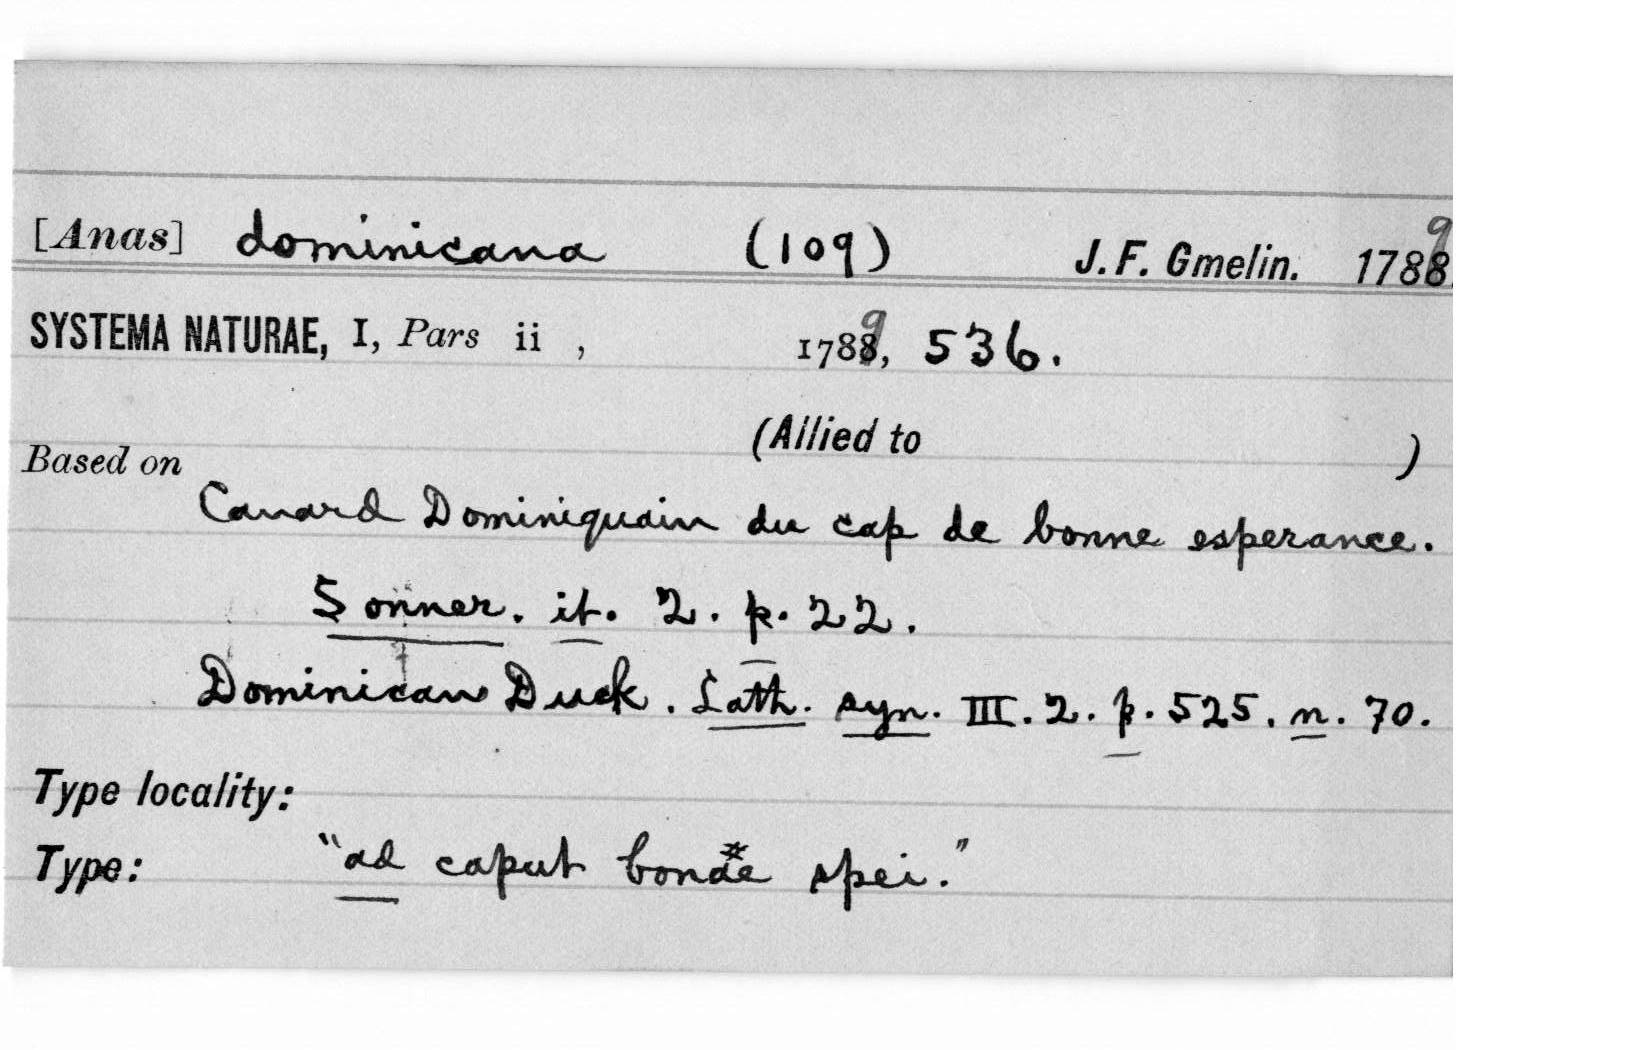 [Anas] dominicana (109) J. F. Gmelin. 1789
SYSTEMA NATURAE, I, Pars ii , 1789, 536.
(Allied to )
Based on
Canard Dominiquain du cap de bonne esperance.
Sonner. it. 2. p. 22.
Dominican Duck. Lath. syn. III. 2. p. 525. n. 70.
Type locality:
Type: "ad caput bonae spei."